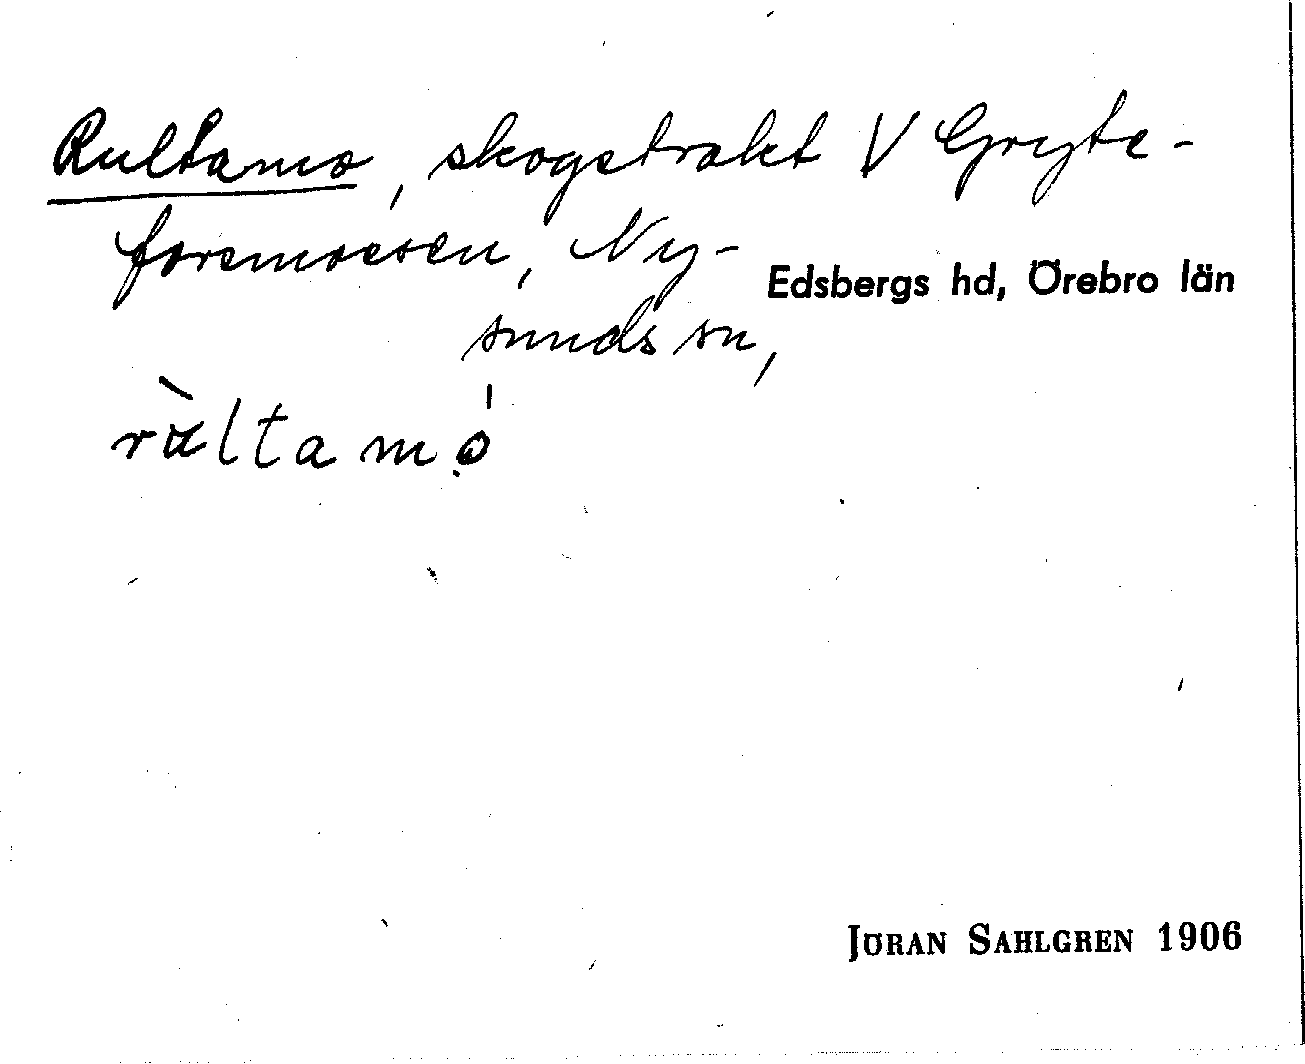 Rultamo, skogstrakt V Gryte-
forsmossen, Ny-
Edsbergs hd, Örebro län
sunds sn,
rùltamó̤
JÖRAN SAHLGREN 1906